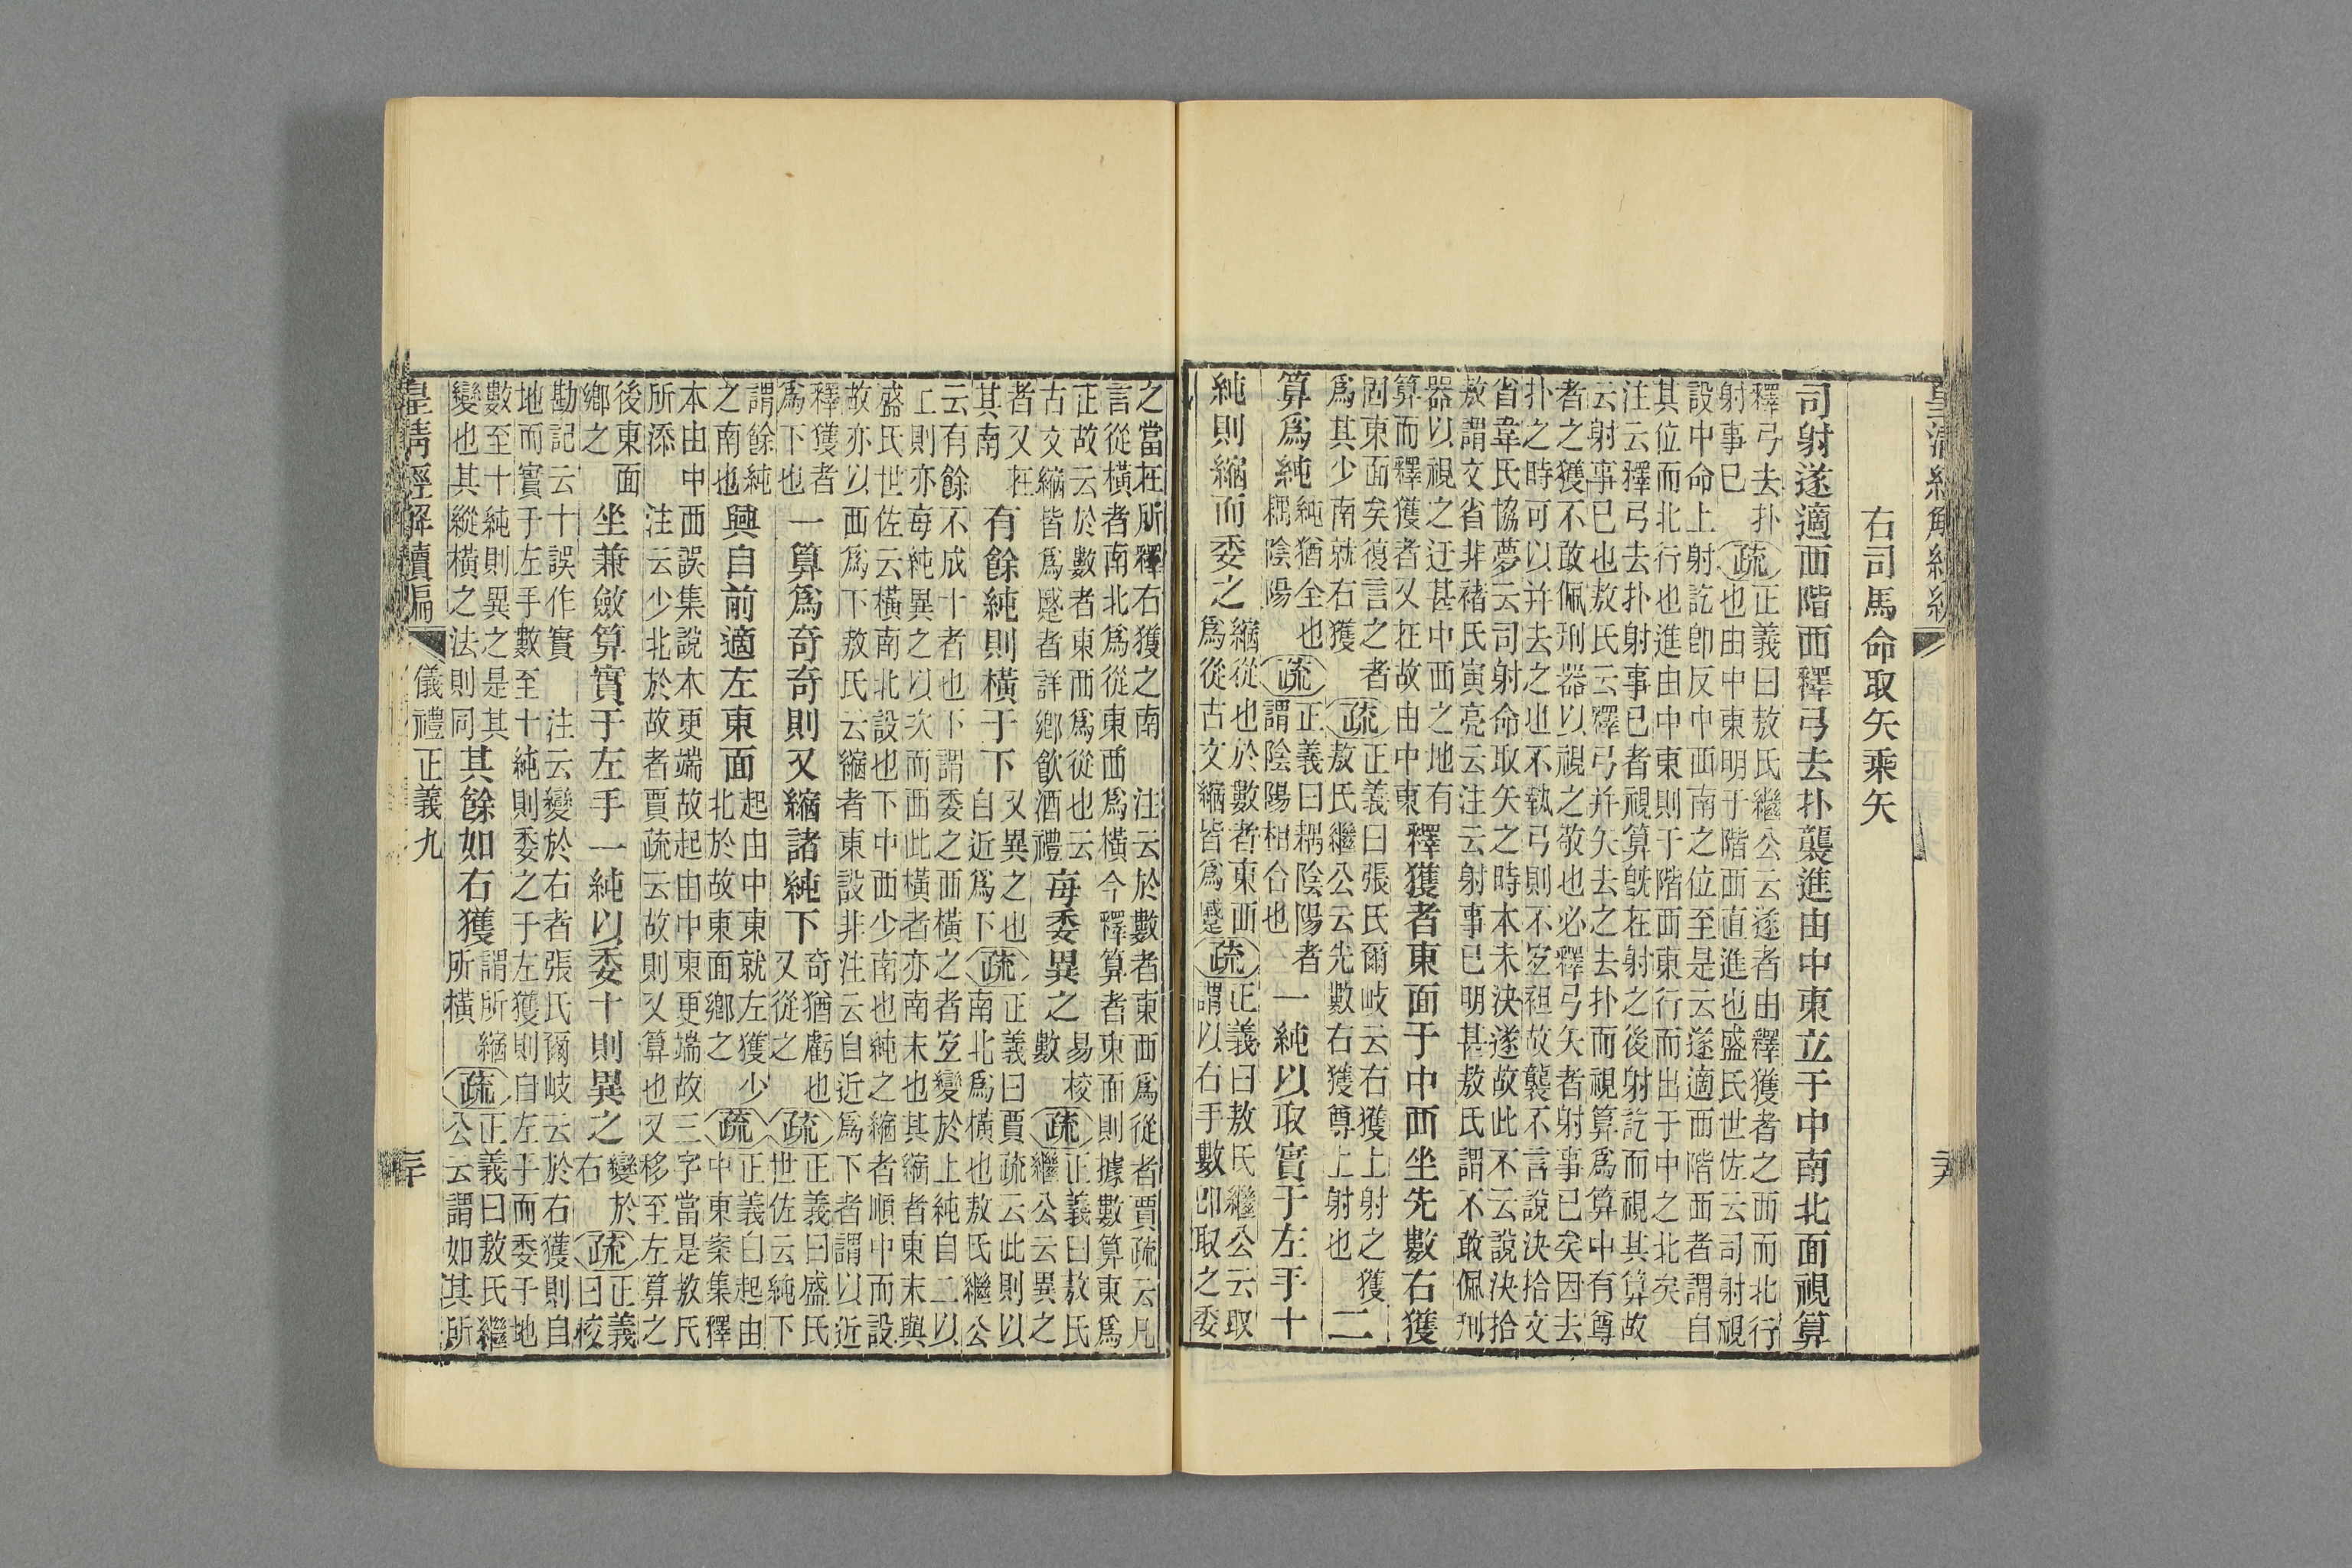 皇清經解續編
右司馬命取矢乘矢
司射遂適西階西釋弓去扑襲進由中東立于中南北面視算
釋弓去扑
射事已
疏
正義曰敖氏繼公云遂者由釋獲者之西而北行
也由中東明于階西直進也盛氏世佐云司射視
設中命上射訖卽反中西南之位至是云遂適西階西者謂自
其位而北行也進由中東則于階西東行而出于中之北矣
注云釋弓去扑射事已者視算旣在射之後射訖而視其算故
云射事已也敖氏云釋弓并矢去之去扑而視算爲算中有尊
者之獲不敢佩刑器以視之敬也必釋弓矢者射事已矣因去
扑之時可以并去之也不執弓則不宜袒故襲不言說決拾文
省韋氏協夢云司射命取矢之時本未決遂故此不云說決拾
敖謂文省非褚氏寅亮云注云射事已明甚敖氏謂不敢佩刑
器以視之迂甚中西之地有
算而釋獲者又在故由中東
釋獲者東面于中西坐先數右獲
固東面矣復言之者
爲其少南就右獲
疏
正義曰張氏爾岐云右獲上射之獲
敖氏繼公云先數右獲尊上射也
二
算爲純
純猶全也
耦陰陽
疏
正義曰耦陰陽者
謂陰陽相合也
一純以取實于左手十
純則縮而委之
縮從也於數者東西
爲從古文縮皆爲蹙
疏
正義曰敖氏繼公云取
謂以右手數卽取之委
之當在所釋右獲之南 注云於數者東西爲從者賈疏云凡
言從橫者南北爲從東西爲橫今釋算者東面則據數算東爲
正故云於數者東西爲從也云
古文縮皆爲蹙者詳鄉飲酒禮
每委異之
易校
數
疏
正義曰敖氏
繼公云異之
者又在
其南
有餘純則橫于下
又異之也
自近爲下
疏
正義曰賈疏云此則以
南北爲橫也敖氏繼公
云有餘不成十者也下謂委之西橫之者宜變於上純自二以
上則亦每純異之以次而西此橫者亦南末也其縮者東末與
盛氏世佐云橫南北設也下中西少南也純之縮者順中而設
故亦以西爲下敖氏云縮者東設非注云自近爲下者謂以近
釋獲者
爲下也
一算爲奇奇則又縮諸純下
奇猶虧也
又從之
疏
正義曰盛氏
世佐云純下
謂餘純
之南也
興自前適左東面
起由中東就左獲少
北於故東面鄉之
疏
正義曰起由
中東案集釋
本由中西誤集說本更端故起由中東更端故三字當是敖氏
所添 注云少北於故者賈疏云故則又算也又移至左算之
後東面
鄉之
坐兼斂算實于左手一純以委十則異之
變於
右
疏
正義
曰校
勘記云十誤作實 注云變於右者張氏爾岐云於右獲則自
地而實于左手數至十純則委之于左獲則自左手而委于地
數至十純則異之是其
變也其縱橫之法則同
其餘如右獲
謂所縮
所橫
疏
正義曰敖氏繼
公云謂如其所
皇清經解續編 儀禮正義九 三十